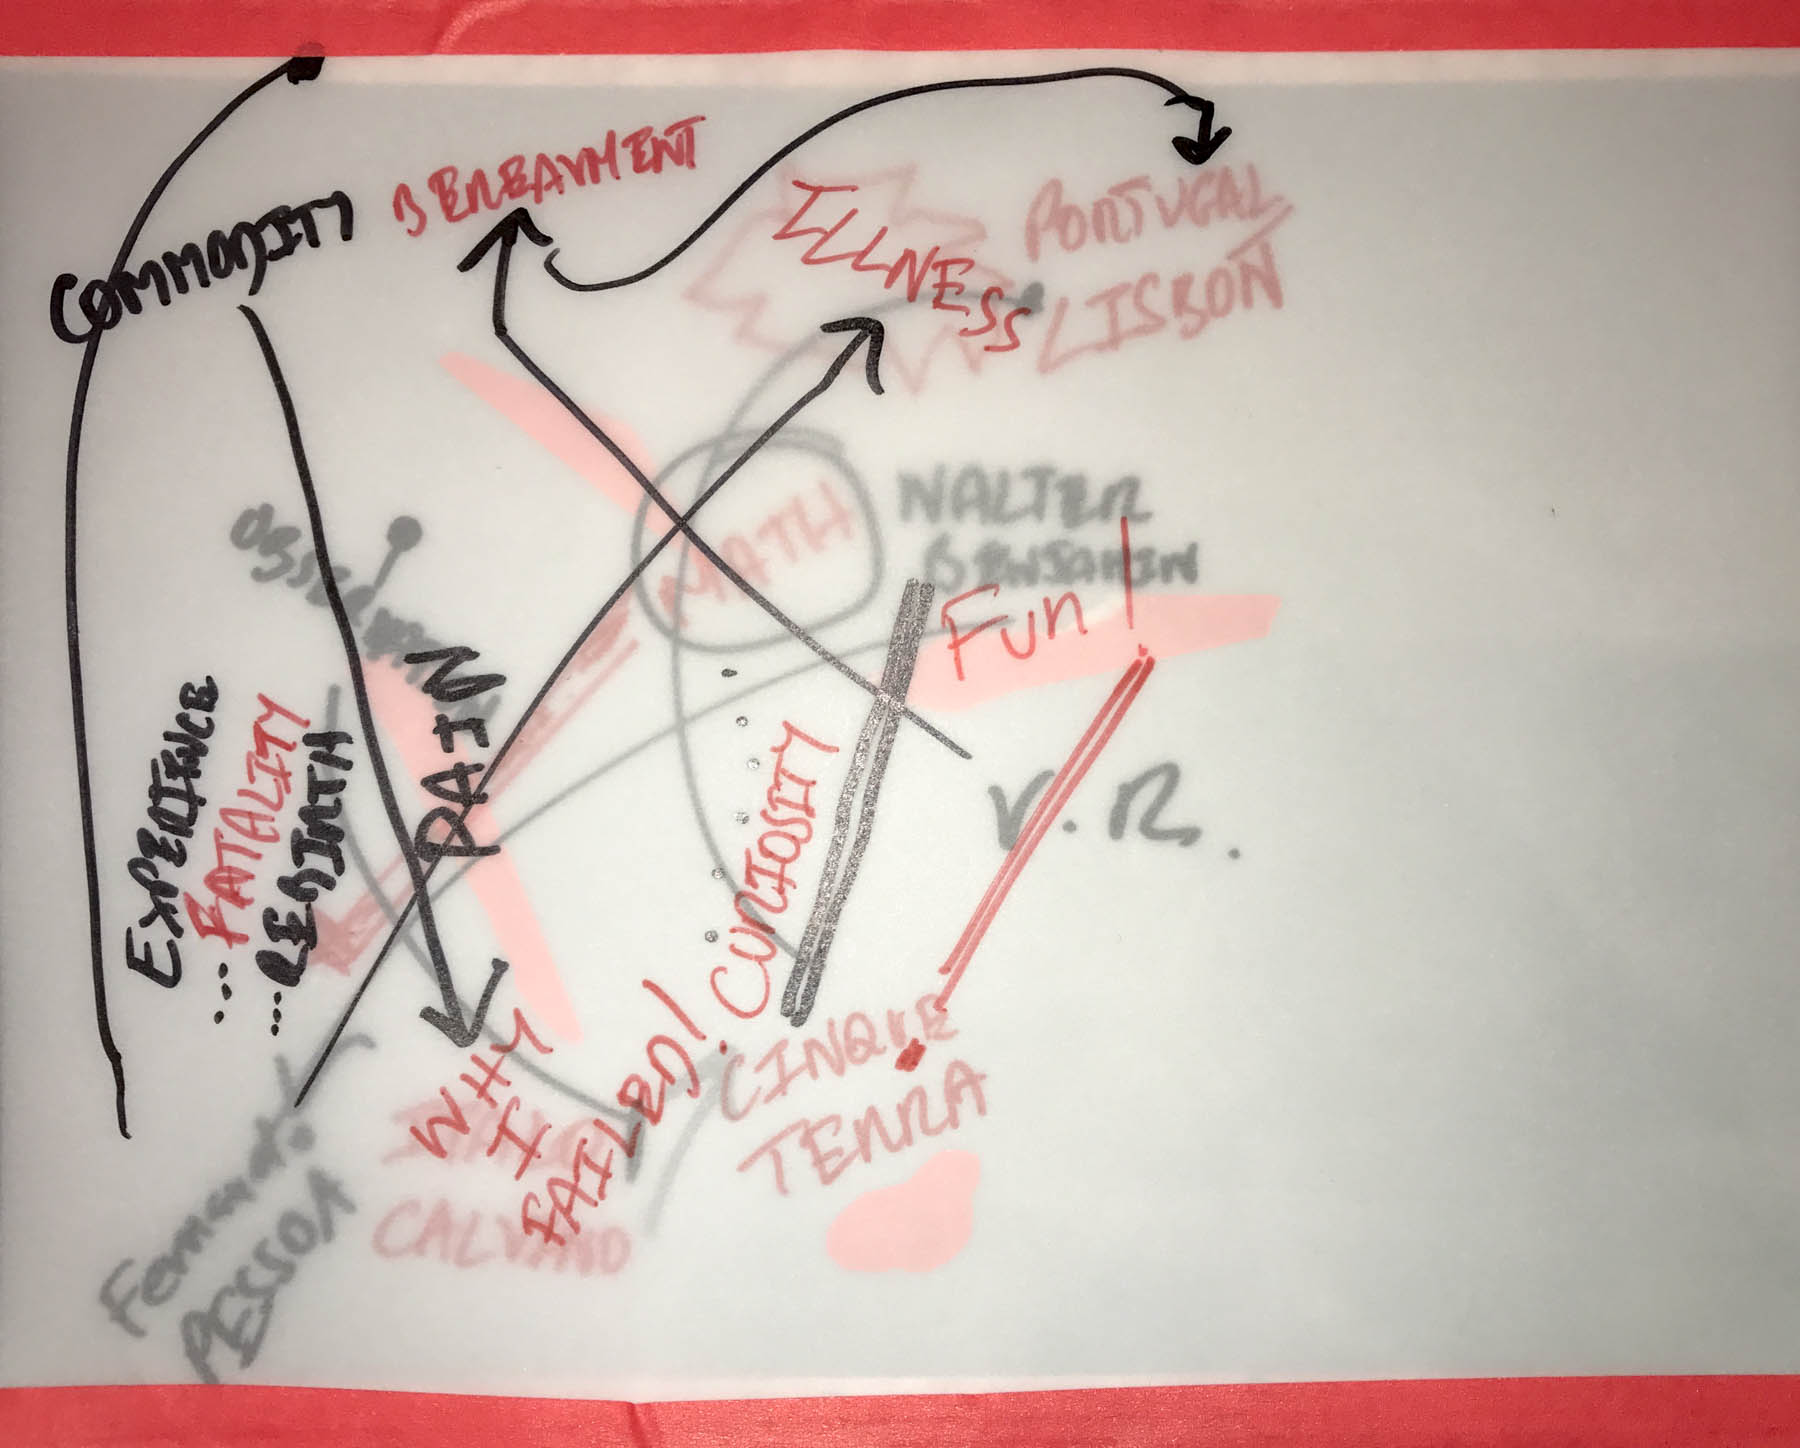 COMMODITY
BEREAVMENT
ILLNESS
PORTUGAL
LISBON
MATH
WALTER
BENJAMIN
Fun!
V.R.
PAIN
EXPERIENCE
...FATALITY
...REBIRTH
CURIOSITY
WHY
I
FAILED!
CINQUE
TERRA
CALVINO
Fernando
PESSOA